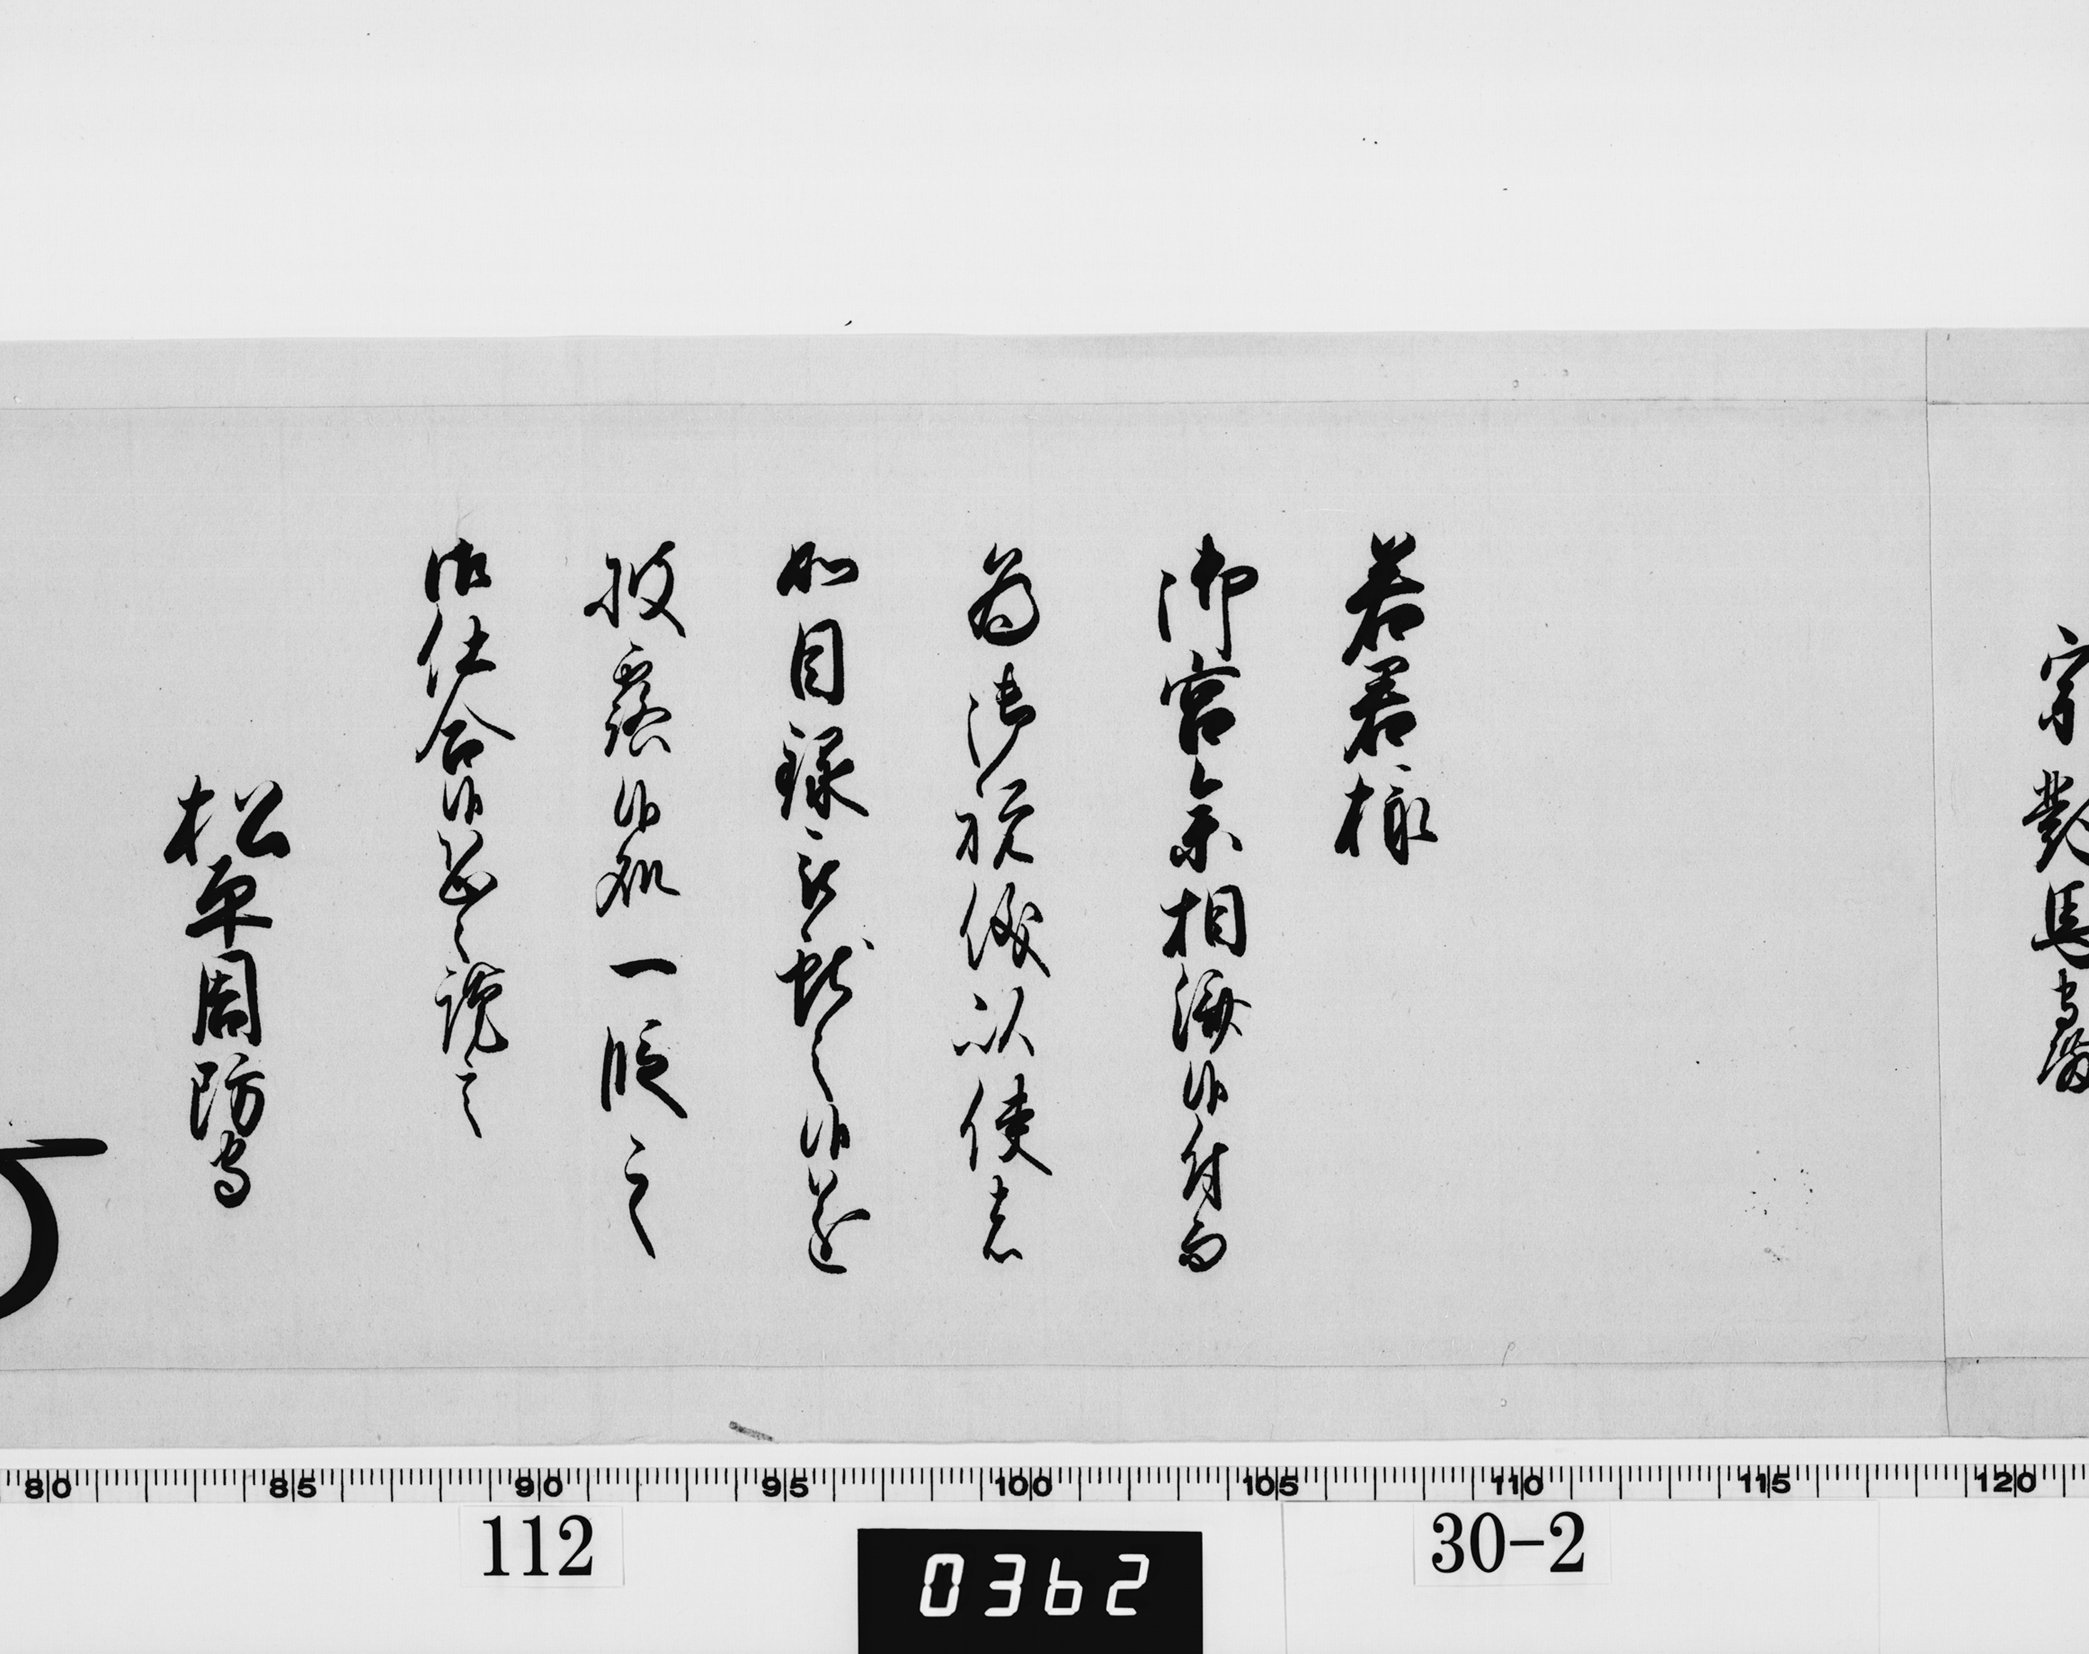 宗對馬守殿
若君様
御宮参相済候付而
為御祝儀以使者
如目録被献之候遂
披露候処一段之
御仕合候恐々謹言
松平周防守
80 85 90 95 100 105 110 115 120
112
0362
30-2